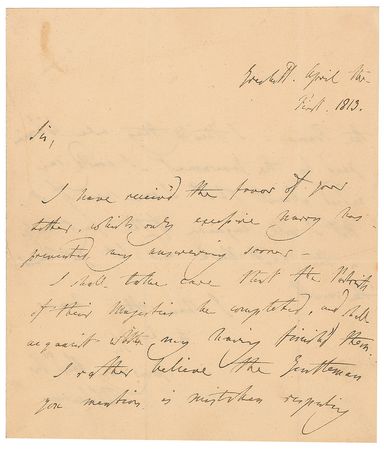 Greek St. April the
First. 1813.
Sir,
I have receiv'd the favor of your
letter, which only excessive hurry has
prevented my answering sooner -
I shall take care that the Portraits
of their Majesties be completed, and shall
acquaint when my having finish'd them.
I rather believe the Gentleman
you mention is mistaken respecting